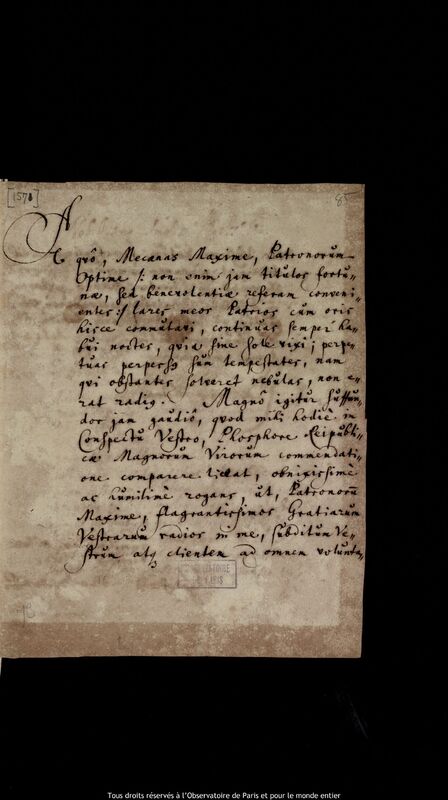 [1571]
85
A quô, Mecænas Maxime, Patronorum
Optime /: non enim jam titulos fortu=
næ, sed benevolentiæ referam conveni=
entes :/ lares meos Patrios cum oris
hisce commutavi, continuas semper ha=
bui noctes, quia sine sole vixi; perpe=
tuas perpessus sum tempestates, nam
qui obstantes solveret nebulas, non e=
rat radius. Magnô igitur suffun=
dor jam gaudiô, quod mihi hodiè in
Conspectu Vestro, Phosphore Reipubli=
cæ Magnorum Virorum commendati=
one comparere liceat, obnixissimè
ac humilimè rogans, ut, Patronorū
Maxime, flagrantissimos Gratiarum
Vestrarum radios in me, subditum Ve=
strum atq clientem ad omnem volunta=
OBSERVATOIRE
DE PARIS
Tous droits réservés à l'Observatoire de Paris et pour le monde entier